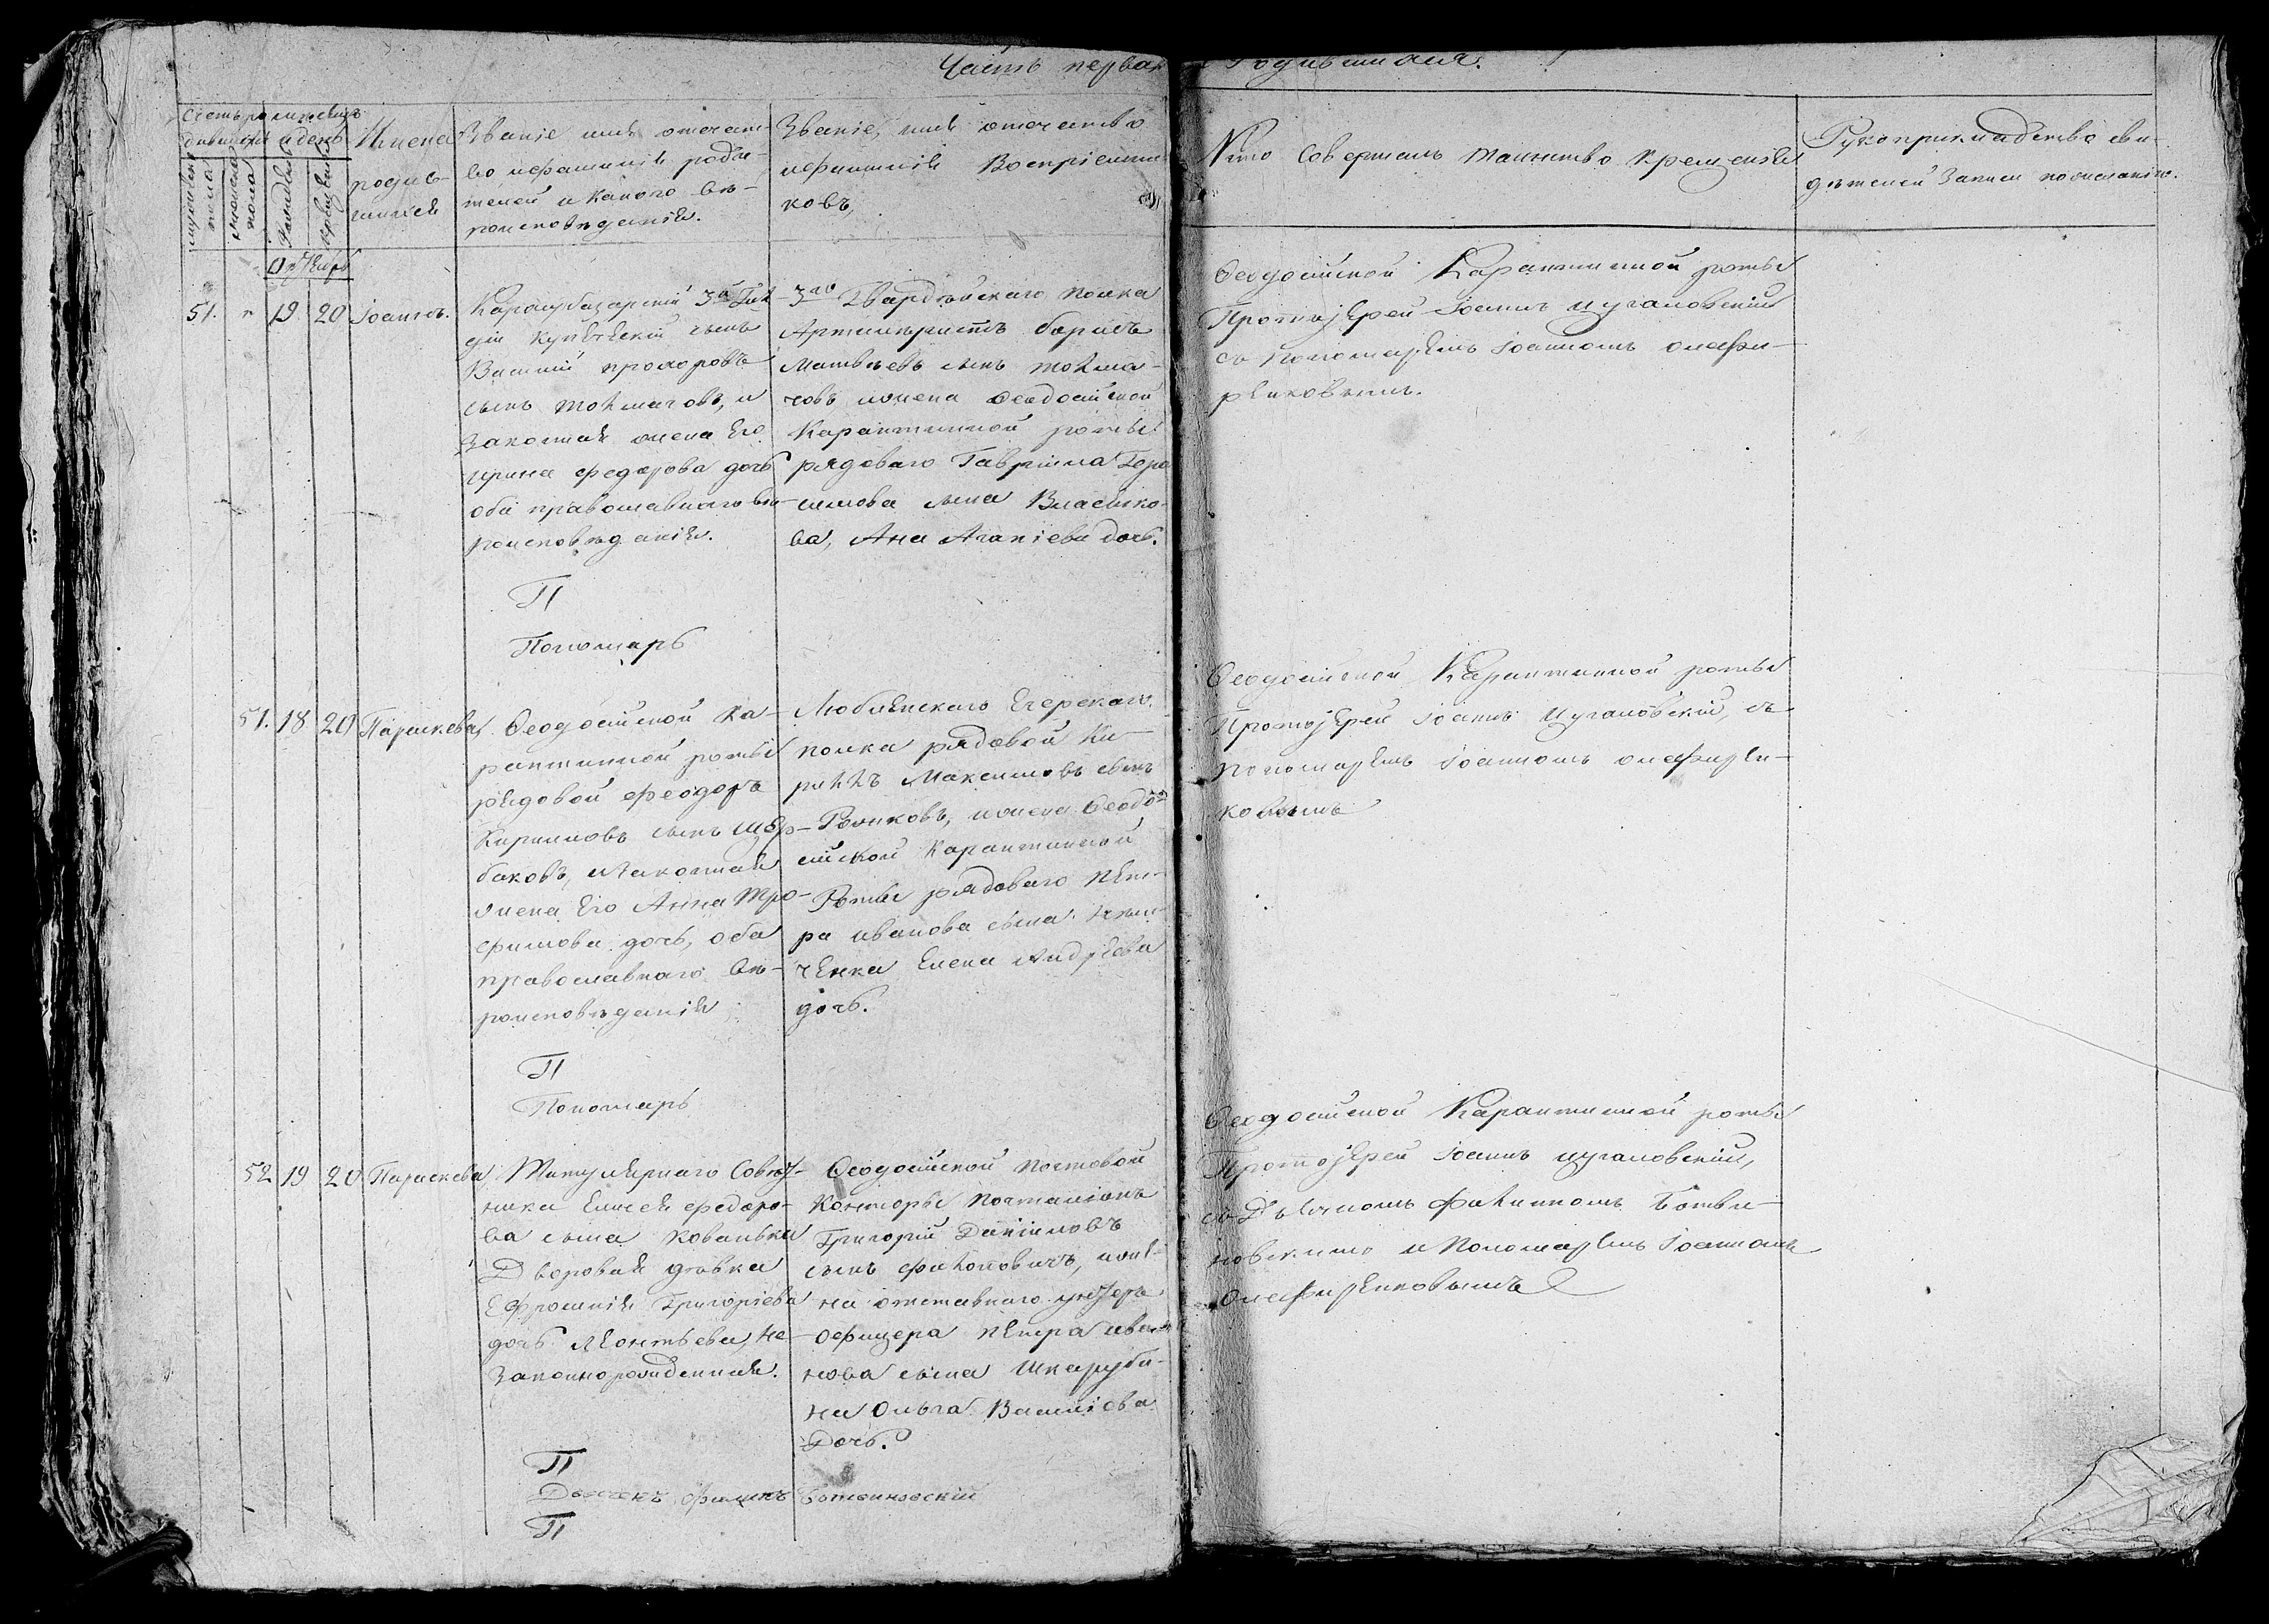 Часть первая
о Родившихся.
Счетъ родившихся
Мѣсяцъ и день
мужеска пола
женска пола
рожденія
крещенія
Имена
родив-
шихся
Званіе имя отечест-
во и фамилія роди-
телей и какого вѣ-
роисповѣданія.
Званіе, имя отечество
и фамилія Воспріемни
ковъ,
Кто Совершалъ таинство крещенія
Рукоприкладство сви-
дѣтелей Записи по желанію.
51.
19
20
Іоаннъ.
Карасубазарскій 3й Гиль
діи купеческій сынъ
Василій прохоровъ
сынъ толмачовъ, и
Законная жена Его
ирина федорова дочь
оба православнаго вѣ-
роисповѣданія.
3го Гвардейскаго полка
Артилеристъ борисъ
Матвѣевъ сынъ толма-
човъ и жена Ѳеодосійской
Карантинной роты
рядоваго Гавріила Гера
симова сына Власенко-
ва, Анна Агапіева дочь.
Ѳеодосійской Карантинной роты
Протоіерей Іоаннъ Цугаловскій
съ Пономаремъ Іоанномъ Олефи-
ренковымъ.
П
Пономарь
51.
18
20
Параскева
Ѳеодосійской Ка-
рантинной роты
рядовой Феодоръ
Кириловъ сынъ Щер-
баковъ, и Законная
жена Его Анна Тро-
фимова дочь, оба
православнаго вѣ-
роисповѣданія
Любленскаго Егерскаго
полка рядовой Ки-
риллъ Максимовъ сынъ
Роликовъ, и жена Ѳеодо-
сійской Карантинной
Роты рядоваго Пет-
ра иванова сына
ченка Елена Андреева
дочь.
Ѳеодосійской Карантинной роты
Протоіерей Іоаннъ Цугаловскій, съ
Пономаремъ Іоанномъ Олефирен-
ковымъ
П
Пономарь
52
19
20
Параскева
Титулярнаго Совѣт-
ника Елисея федоро-
ва сына Кованька
Дворовая дѣвка
Ефросинія Григоріева
дочь Леонтьева, не-
законнорожденная.
Ѳеодосійской почтовой
Конторы почталіонъ
Григорій Даніиловъ
сынъ Филоновичъ, и же-
на отставнаго унтеръ
Офицера Петра ива-
нова сына Шкаруби-
на Ольга Василіова
Дочь.
Ѳеодосійской Карантинной роты
Протоіерей Іоаннъ Цугаловскій,
съ Дьячкомъ Филиппомъ Ботви-
новскимъ и Пономаремъ Іоанномъ
Олефиренковымъ
П
Дьячекъ Филипъ Ботвиновскій
П